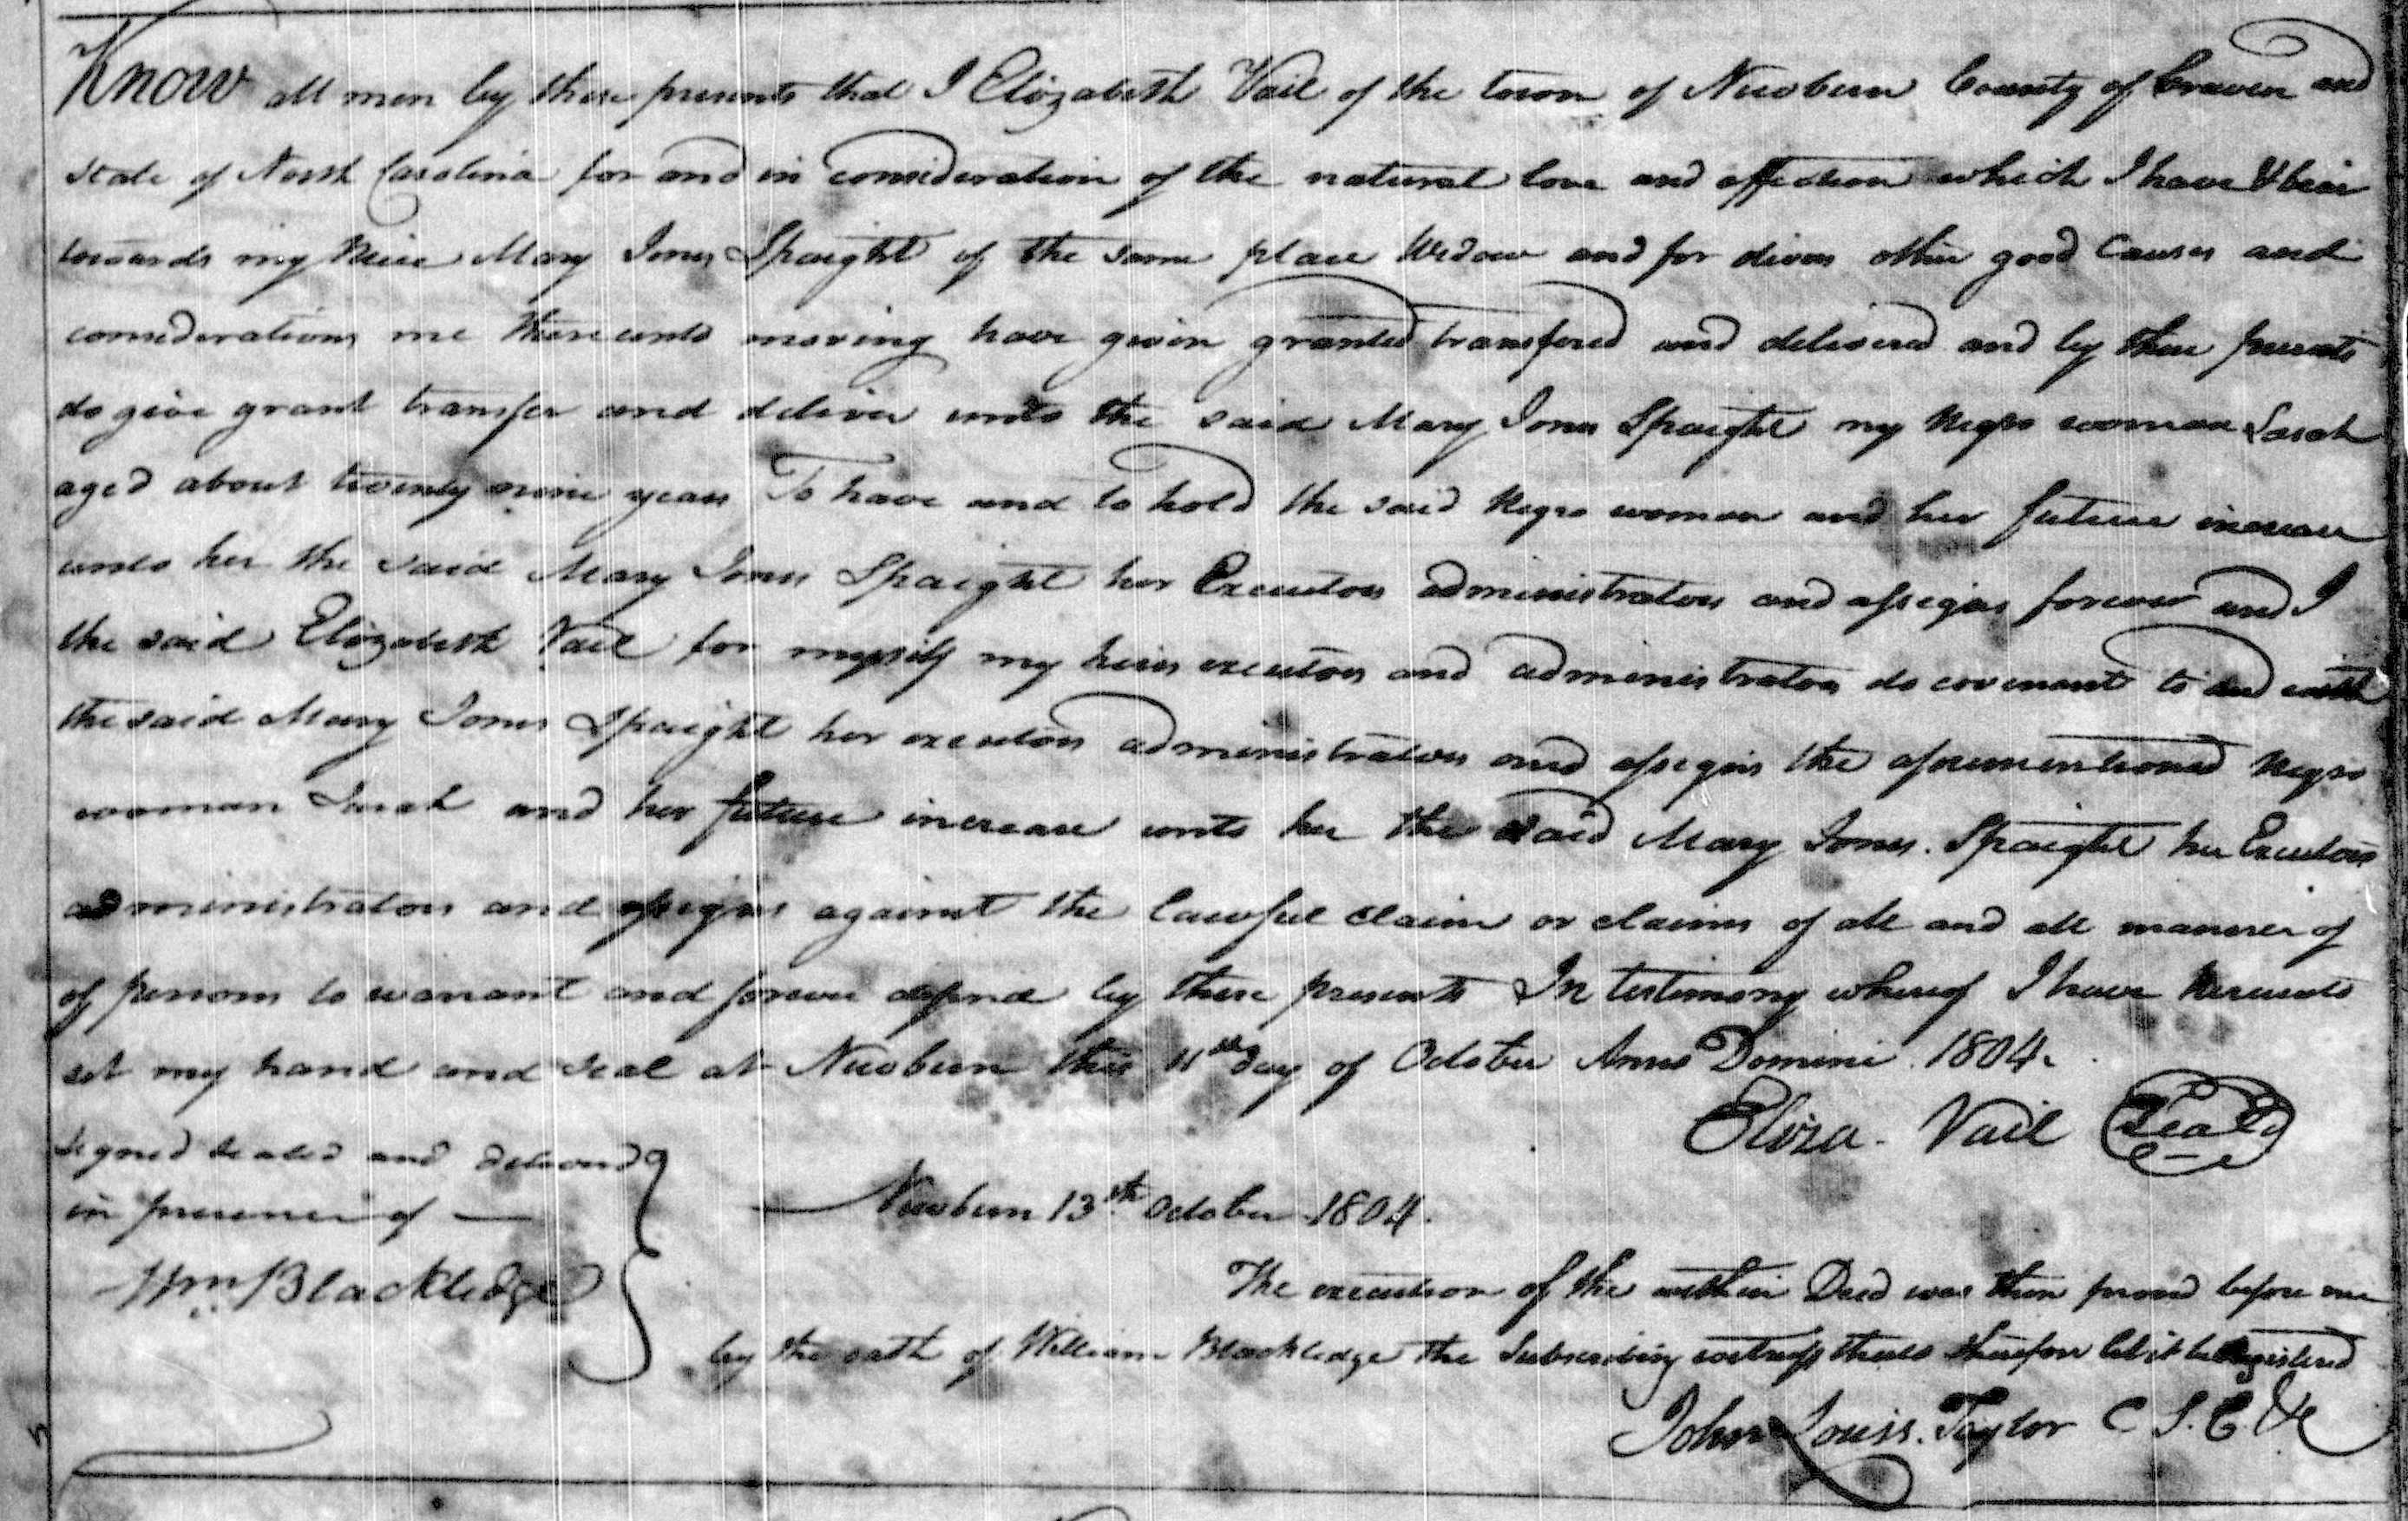 Know all men by these presents that I Elizabeth Vail of the town of Newbern County of Craven and
State of North Carolina for and in consideration of the natural love and affection which I have & bear
towards my Niece Mary Jones Spaight of the same place Widow and for divers other good Causes and
considerations me thereunto moving have given granted transfered and delivered and by these presents
do give grant transfer and deliver unto the said Mary Jones Spaight my Negro woman Sarah
aged about twenty nine years To have and to hold the said Negro woman and her future increase
unto her the said Mary Jones Spaight her Executors administrators and assigns forever and I
the said Elizabeth Vail for myself my heirs executors and administrators do covenant to and with
the said Mary Jones Spaight her executors administrators and assigns the aforementioned Negro
woman Sarah and her future increase unto her the said Mary Jones Spaight her Executors
administrators and assigns against the lawful claim or claims of all and all manner of
of persons to warrant and forever defend by these presents In testimony whereof I have hereunto
set my hand and seal at Newbern this 11th day of October Anno Domini 1804.
Eliza. Vail Seal
Signed sealed and delivered
in presence of —
Wm Blackledge
Newbern 13th October 1804.
The execution of the within Deed was then proved before me
by the oath of William Blackledge the Subscribing witness thereto therefore let it be Registered
John Louis Taylor C S. C &c